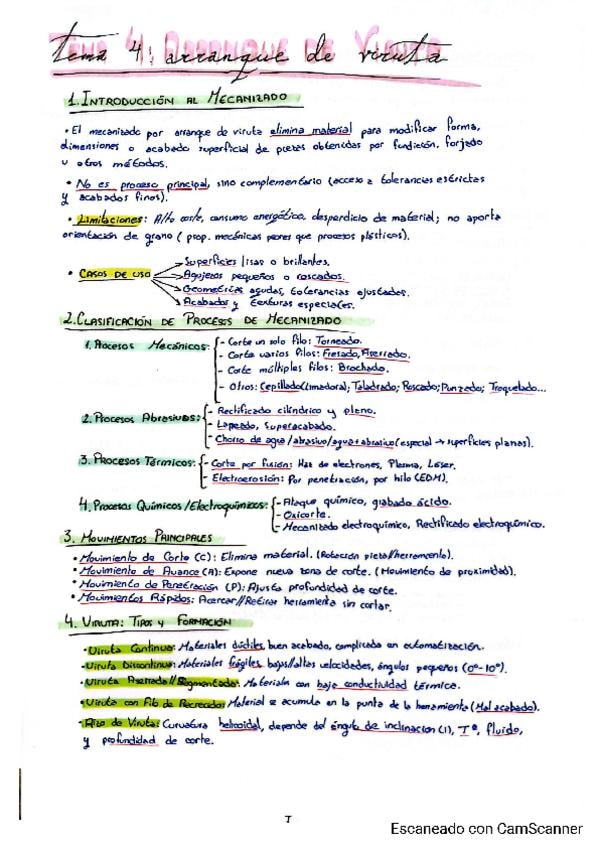 Tema 4: arranque de viruta
1. INTRODUCCIÓN AL MECANIZADO
• El mecanizado por arranque de viruta elimina material para modificar forma,
dimensiones o acabado superficial de piezas obtenidas por fundición, forjado
u otros métodos.
• No es proceso principal, sino complementario (acceso a tolerancias estrictas
y acabados finos).
• Limitaciones: Alto coste, consumo energético, desperdicio de material; no aporta
orientación de grano (prop. mecánicas peores que procesos plásticos).
• CASOS DE USO
Superficies lisas o brillantes.
Agujeros pequeños o roscados.
Geometrías agudas, tolerancias ajustadas.
Acabados y texturas especiales.
2. CLASIFICACIÓN DE PROCESOS DE MECANIZADO
1. Procesos Mecánicos:
- Corte un solo filo: Torneado.
- Corte varios filos: Fresado, Aserrado.
- Corte múltiples filos: Brochado.
- Otros: Cepillado (limadora); Taladrado; Roscado; Punzado; Troquelado...
2. Procesos Abrasivos:
- Rectificado cilíndrico y plano.
- Lapeado, superacabado.
- Chorro de agua/abrasivo/agua+abrasivo (especial → superficies planas).
3. Procesos Térmicos:
- Corte por fusión: Haz de electrones, Plasma, Láser.
- Electroerosión: Por penetración, por hilo (EDM).
4. Procesos Químicos/Electroquímicos:
- Ataque químico, grabado ácido.
- Oxicorte.
- Mecanizado electroquímico, Rectificado electroquímico.
3. MOVIMIENTOS PRINCIPALES
• Movimiento de Corte (C): Elimina material. (Rotación pieza//herramienta).
• Movimiento de Avance (A): Expone nueva zona de corte. (Movimiento de proximidad).
• Movimiento de Penetración (P): Ajusta profundidad de corte.
• Movimientos Rápidos: Acercar//Retirar herramienta sin cortar.
4. VIRUTA: TIPOS Y FORMACIÓN
• Viruta Continua: Materiales dúctiles, buen acabado, complicada en automatización.
• Viruta Discontinua: Materiales frágiles, bajas/altas velocidades, ángulos pequeños (0°-10°).
• Viruta Aserrada//Segmentada: Materiales con baja conductividad térmica.
• Viruta con Filo de Recrecido: Material se acumula en la punta de la herramienta (Mal acabado).
• Rizo de Viruta: Curvatura helicoidal, depende del ángulo de inclinación (i), Tª, fluido,
y profundidad de corte.
Escaneado con CamScanner